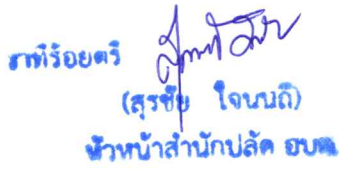 ว่าที่ร้อยตรี
(สุรชัย ใจนนถิ)
หัวหน้าสำนักปลัด อบต.